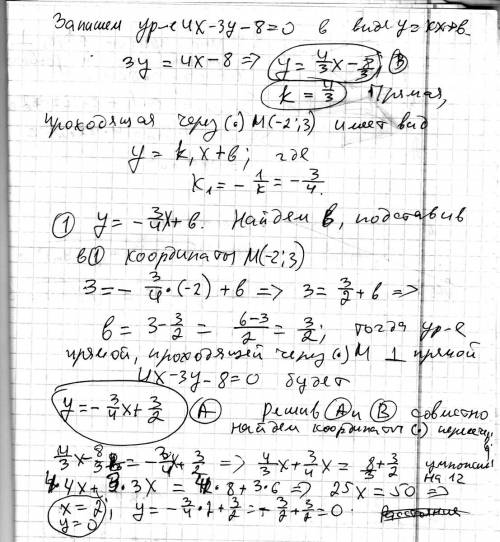 Запишем ур-е 4x-3y-8=0 в виде y=кx+в.
3y = 4x-8 => y = 4/3 x - 8/3 (B)
k = 4/3 Прямая,
проходящая через (•) M(-2;3) имеет вид
y = k₁x+в; где
K₁ = - 1/k = - 3/4.
(1) y = - 3/4 x + в. Найдем в, подставив
в (1) координаты M(-2;3)
3 = - 3/4 • (-2) + в => 3 = 3/2 + в =>
в = 3 - 3/2 = (6-3)/2 = 3/2; тогда ур-е
прямой, проходящей через (•) M ⊥ прямой
4x-3y-8=0 будет
y = - 3/4 x + 3/2 (A) решив (A) и (B) совместно
найдем координаты (•) пересеч.
4/3 x - 8/3 = - 3/4 x + 3/2 => 4/3 x + 3/4 x = 8/3 + 3/2 умножим
на 12
4•4x + 3•3x = 4•8 + 3•6 => 25x = 50 =>
x = 2; y = - 3/4 • 2 + 3/2 = - 3/2 + 3/2 = 0
y = 0